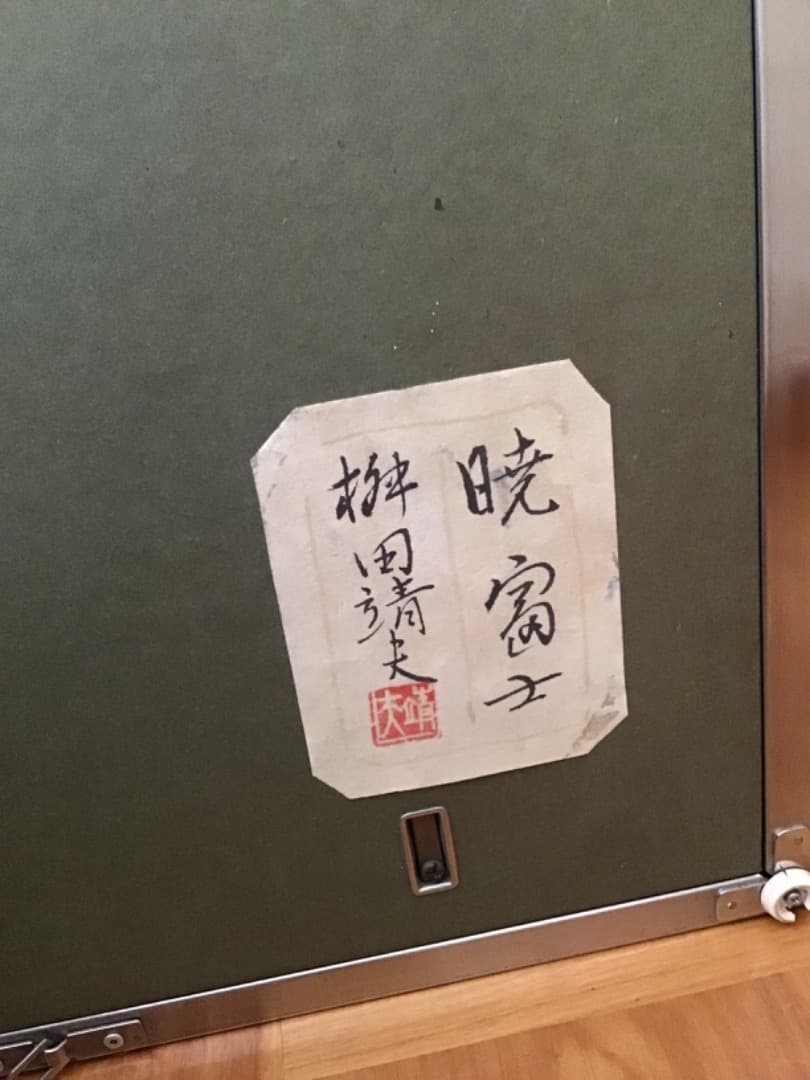 暁富士
桝田靖夫
靖夫